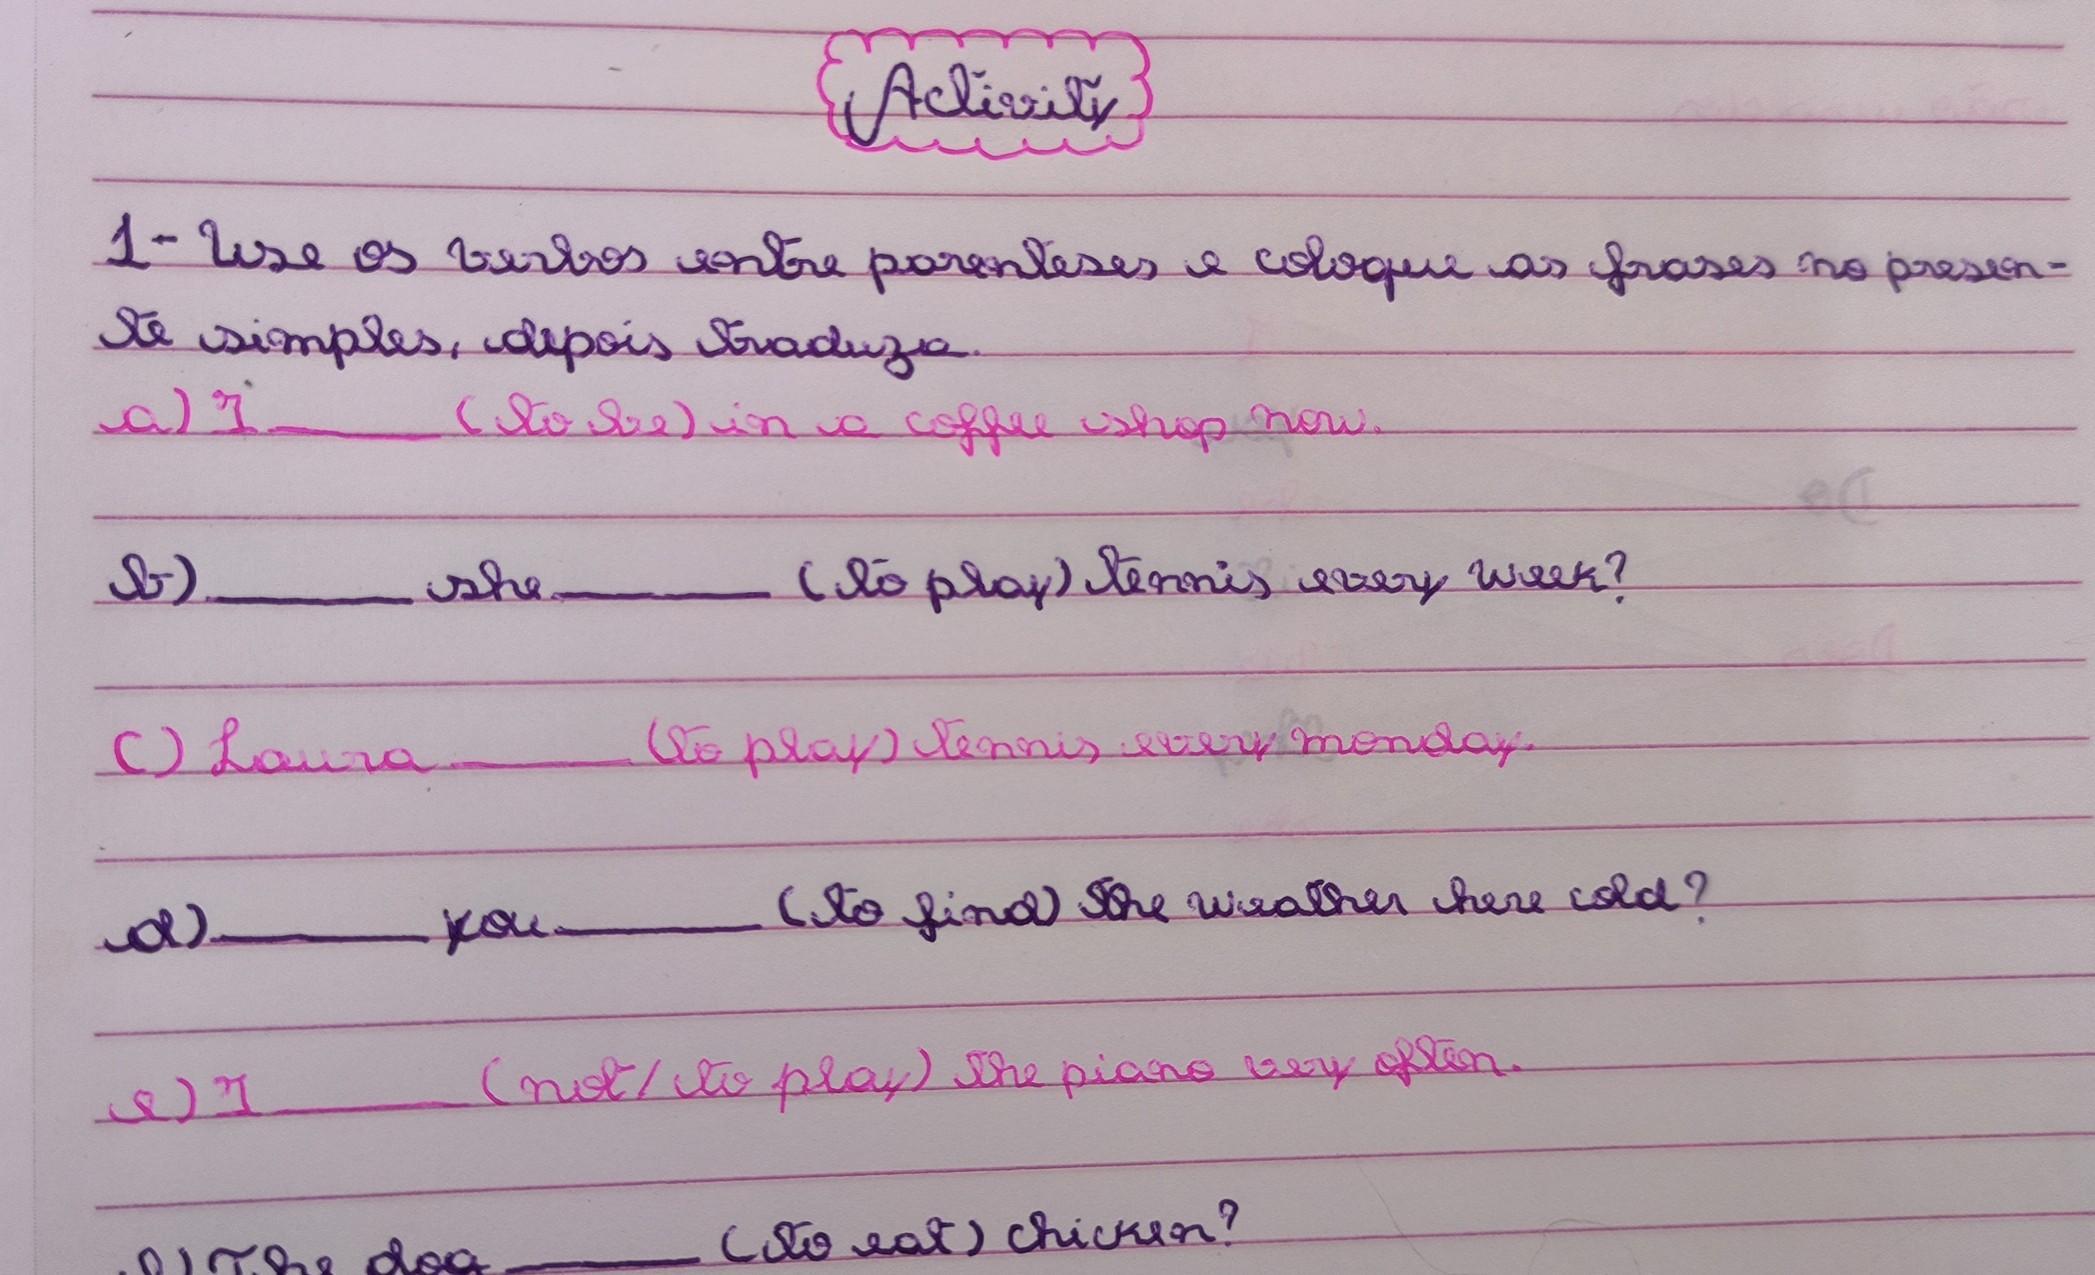 Activity
1- Use os verbos entre parenteses e coloque as frases no presen-
te simples, depois traduza.
a) I ______ (to be) in a coffee shop now.
b) ______ she ______ (to play) tennis every week?
c) Laura ______ (to play) tennis every monday.
d) ______ you ______ (to find) the weather here cold?
e) I ______ (not/to play) the piano very often.
f) The dog ______ (to eat) chicken?